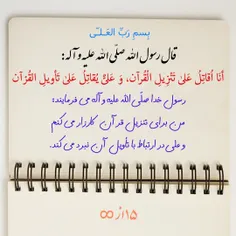 بِسمِ رَبِّ العَلـی
قال رسول الله صلّی الله علیه و آله:
أنَا اُقاتِلُ عَلیٰ تَنْزیلِ الْقُرآنِ، وَ عَلیٌّ یُقاتِلُ عَلیٰ تَأویلِ القُرْآنِ
رسول خدا صلّی الله علیه و آله می فرمایند:
من برای تنزیل قرآن کارزار می کنم
و علی در ارتباط با تأویل آن نبرد می کند.
۱۵ از ∞